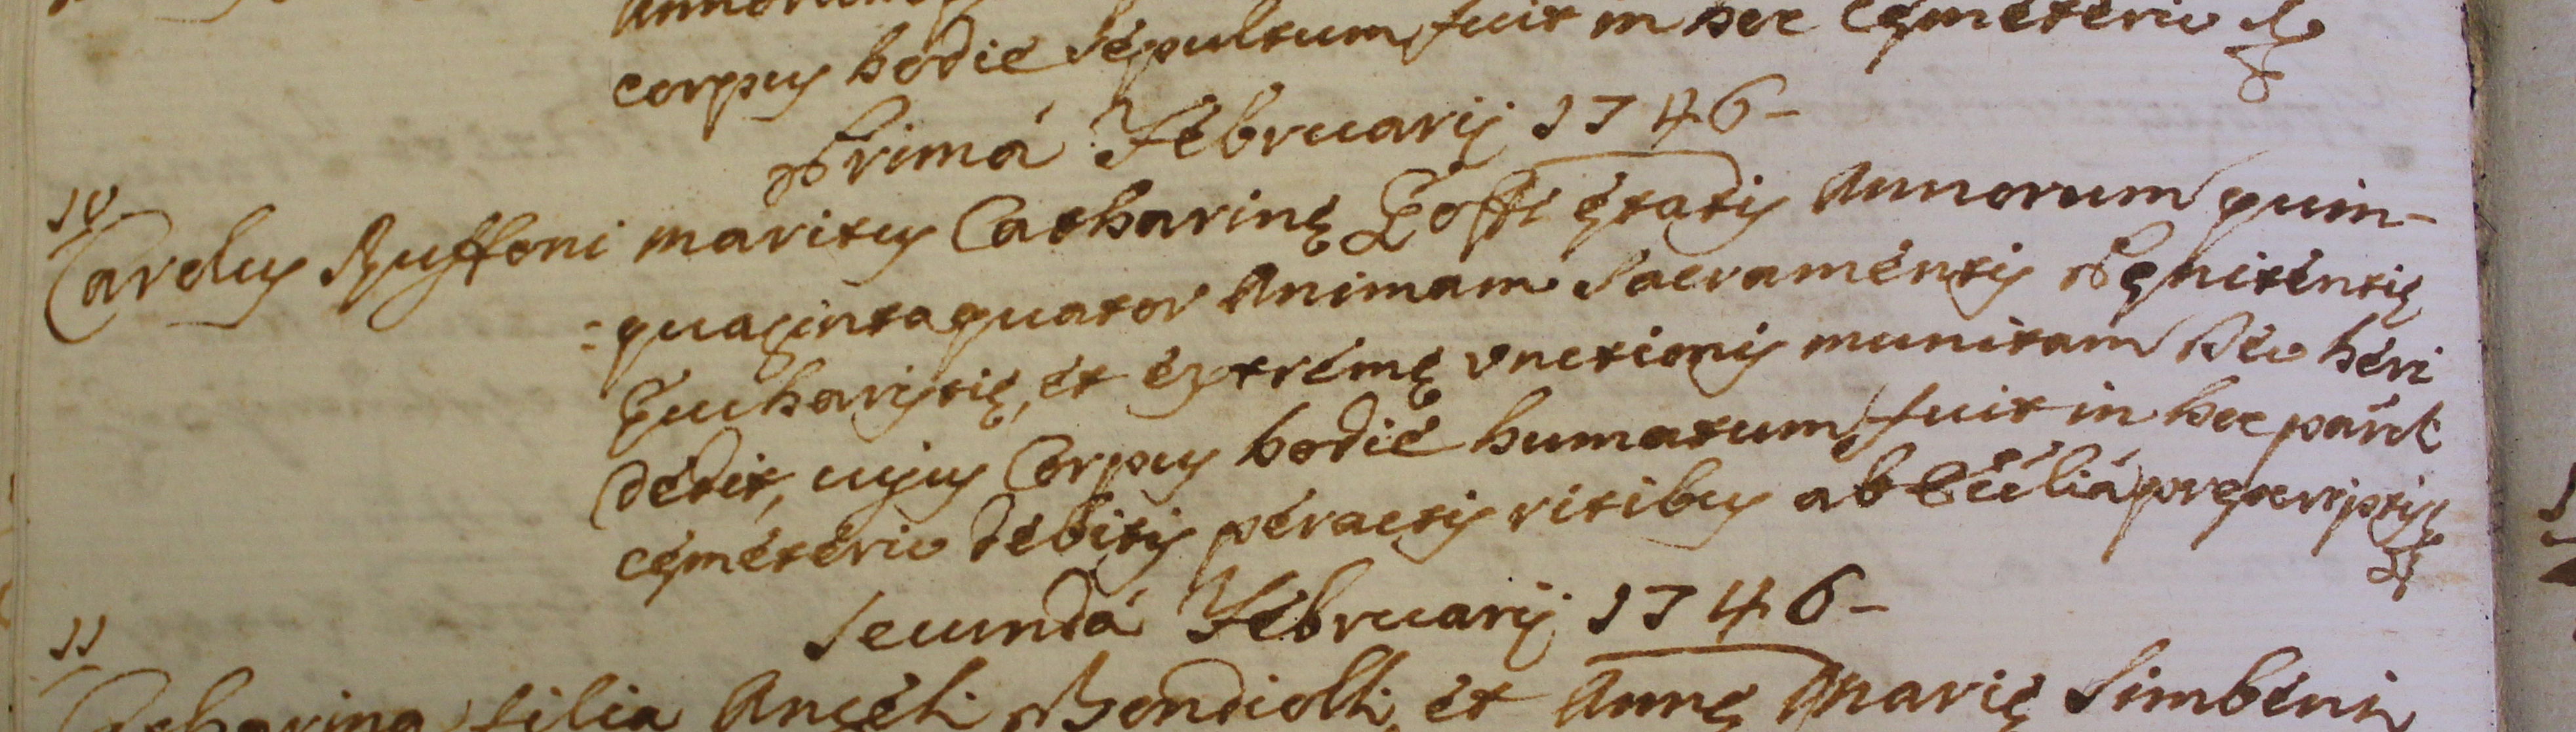 corpus hodie sepultum fuit in hoc cęmeterio
Primá Februarij 1746-
10
Carolus Ruffoni maritus Catharinę Zoffi ętatis Annorum quin-
=quagintaquator Animam Sacramentis Pęnitentię
Eucharistię, et extremę unctionis munitam Deo heri
dedit, cujus Corpus hodie humatum fuit in hoc parli
cęmeterio debitis peractis ritibus ab Eccliá pręscriptis
Secundá Februarij 1746-
11
Catharina filia Angeli Bondiolli, et Annę Marię Simbeni